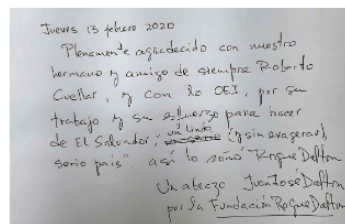 Jueves 13 febrero 2020
Plenamente agradecido con nuestro
hermano y amigo de siempre Roberto
Cuellar, y con la OEI, por su
trabajo y su esfuerzo para hacer
de El Salvador, "un lindo (y sin exagerar),
serio país". así lo soñó Roque Dalton
Un abrazo Juan José Dalton
por la Fundación Roque Dalton